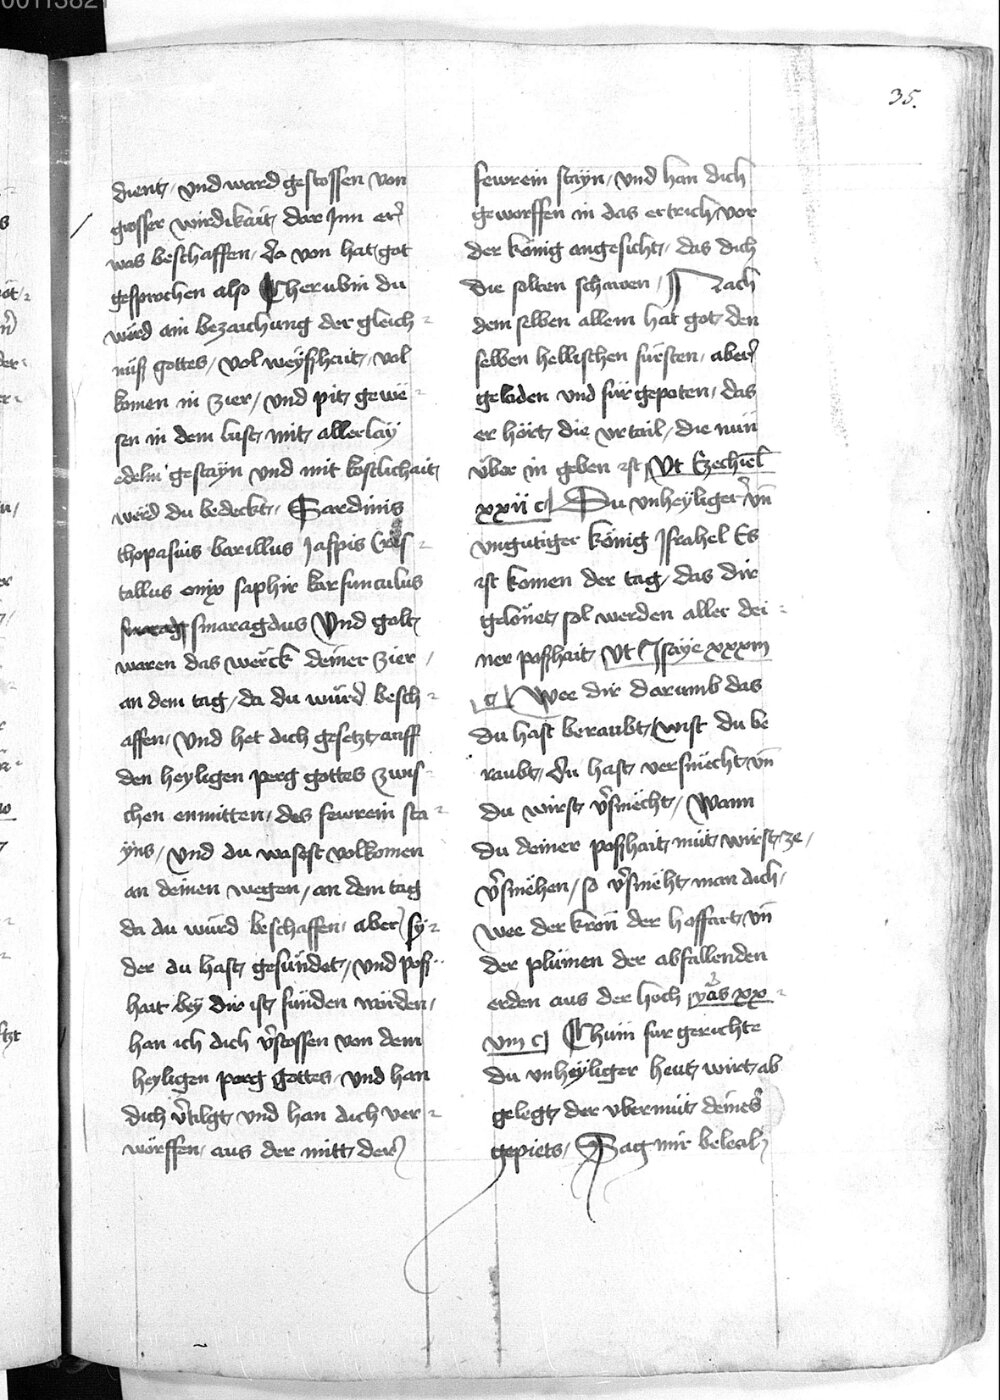 35.
dient, vnd ward gestossen von
grosser wirdikait, dar Inn er
was beschaffen, da von hat got
gesprochen also Cherubin du
würd ain bezaichung der gleich
nüß gottes, vol weyßhait, vol
komen in zier, vnd pit gewe
sen in dem lust, mit allerlay
edelm gestayn vnd mit kostlichait
werd du bedeckt, Sardinis
thopasius barillus Jaspis Cris
tallus onix saphir karfunculus
smaragdus Vnd golt
waren das werck deiner zier,
an dem tag, da du würd besch
affen, Vnd het dich gesetzt auff
den heyligen perg gottes zwis
chen enmitten, des fewrein sta
yns, Vnd du wasest volkomen
an deinen wegen, an dem tag
da du würd beschaffen, aber sy
der du hast gesündet, vnd poß
hait bey dir ist funden worden,
han ich dich v̄stossen von dem
heyligen perg Gottes, vnd han
dich v̄tilgt, vnd han dich ver
worffen, aus der mitt der
fewrein stayn, vnd han dich
geworffen in das ertrich, vor
der konig angesicht, das dich
die solten schawen, Nach
dem selben allem hat got den
selben hellischen fürsten, aber
geladen vnd für gepoten, das
er hört die vrtail, die nun
über in geben ist, Vt Ezechiel
xxii c Du vnheyliger vn̄
vngutiger konig Israhel Es
ist komen der tag, das dir
gelonet sol werden aller dei
ner poßhait, Vt Isaye xxxiii
c Wee dir darumb das
du hast beraubt, wist du be
raubt, du hast versmecht, vn̄
du wirst v̄smecht, Wann
du deiner poßhait müt wirst ze,
v̄smehen, so v̄smeht man dich,
wee der kron der hoffart, vn̄
der plumen der abfallenden
erden aus der hoch yās xx
viii c Chum fur gerichte
du vnheyliger heut wirt ab
gelegt der vbermüt deines
gepiets, Sag mir beleal